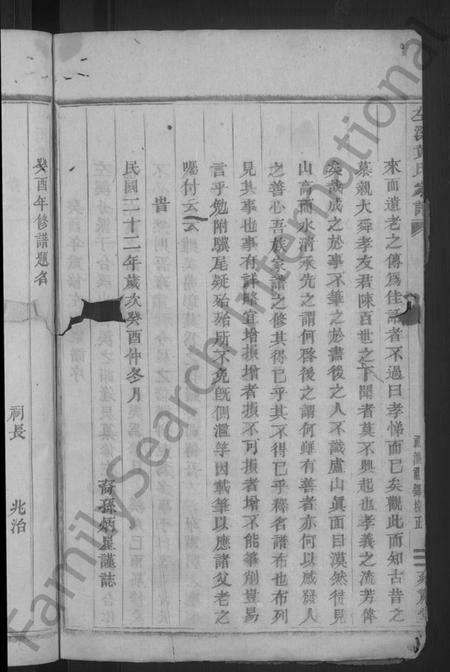 來而遺老之傳為佳話者不過曰孝悌而已矣觀此而知古昔之
慕親大舜孝友君陳百世之下聞者莫不興起也孝義之流芳偉
矣哉成之於事不筆之於書後之人不識廬山眞面目漠然待見
山高而水清承先之謂何啓後之謂何雖有善者亦何以感發人
之善心吾族宗譜之修其得已乎其不得已乎釋名譜布也布列
見其事也事有詳略宜增損增者損不可損者增不能筆削豈易
言乎勉附驥尾疑殆殆所不免旣倜濫竽因載筆以應諸父老之
囑付云云
旹
民國二十二年歲次癸酉仲冬月
裔孫炳星謹誌
癸酉年修譜題名
祠長 兆治
FamilySearch International